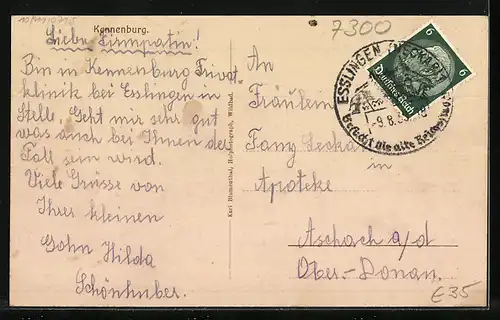 10/1110715
Kennenburg.
7300
Liebe Firmpatin!
Bin in Kennenburg Privat
klinik bei Esslingen in
Stelle, Geht mir sehr gut
was auch bei Ihnen der
Fall sein wird.
Viele Grüsse von
Ihrer kleinen
Hilda
Schönhuber.
Karl Blumenthal, Hofphotograph, Wildbad.
ESSLINGEN (NECKAR)
-9.8.
Besucht die alte
6 6
Deutsches Reich
An
Fräulein
Fany
in
Apotheke
Aschach a/d
Ober-Donau.
€35